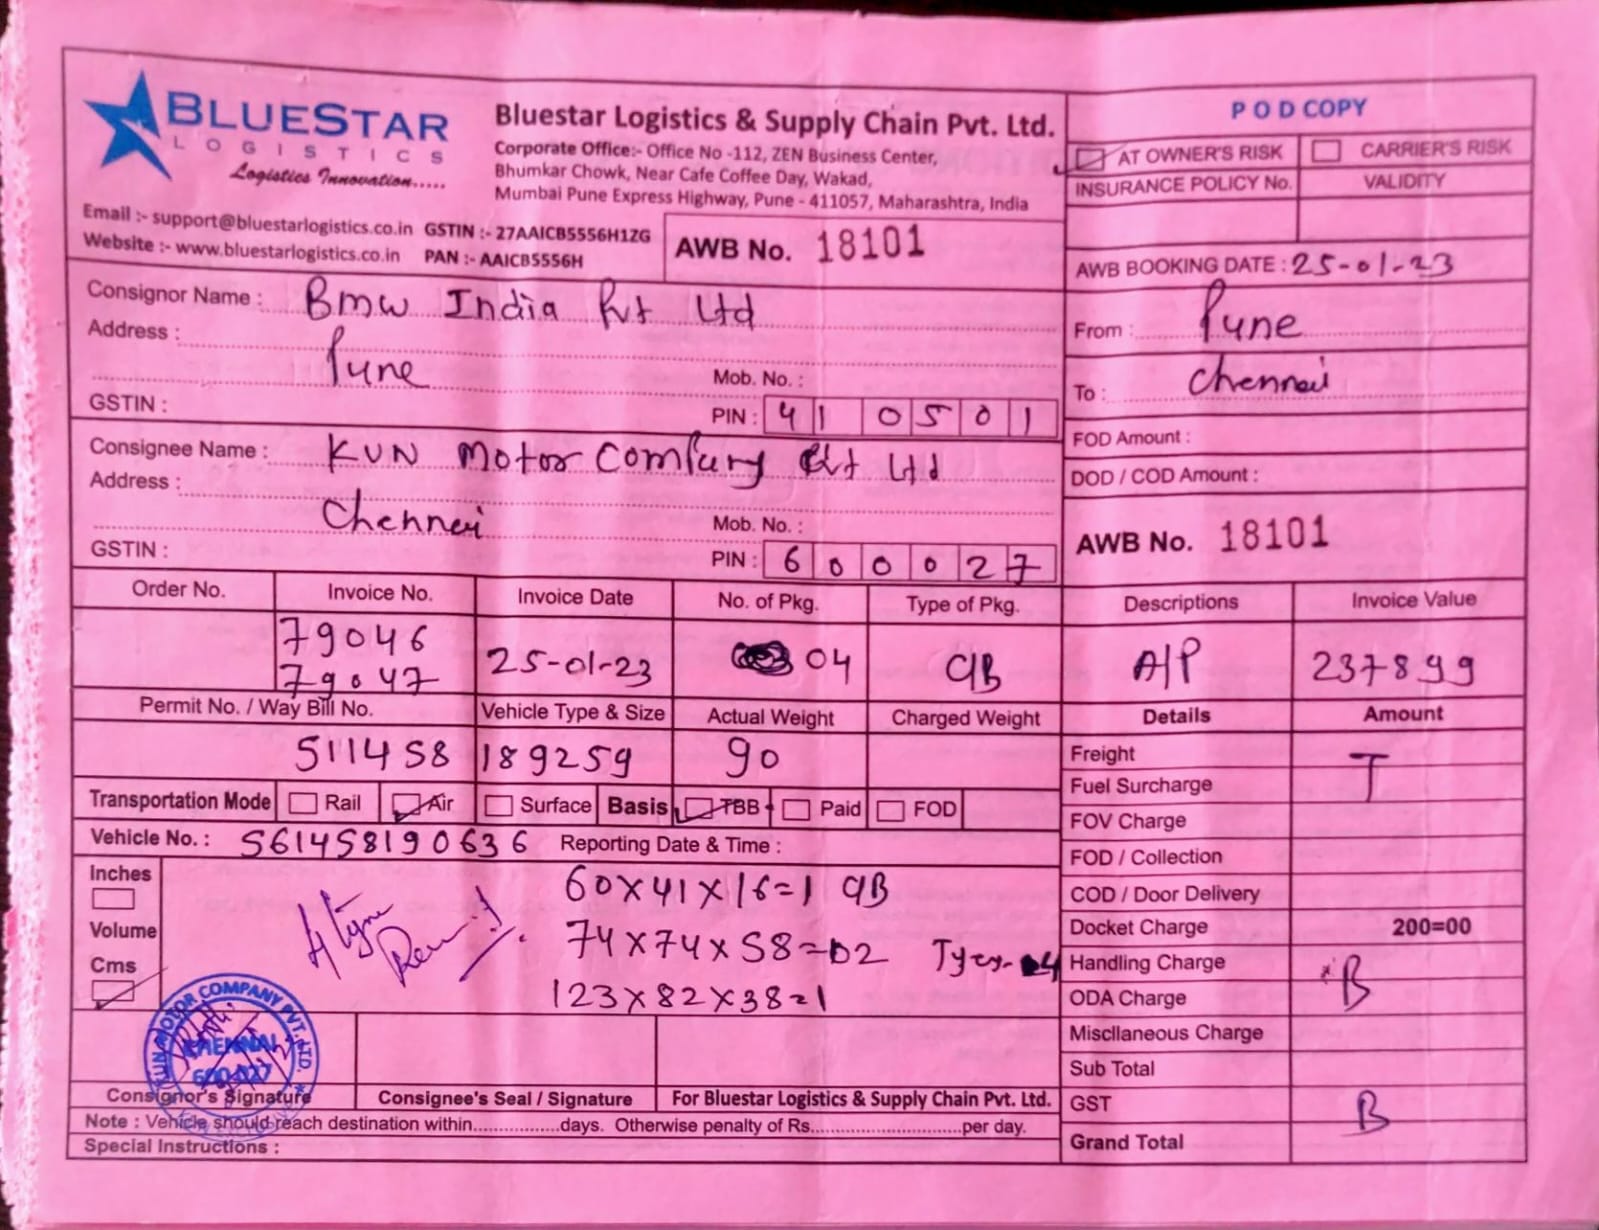 BLUESTAR
LOGISTICS
Logistics Innovation.....
Bluestar Logistics & Supply Chain Pvt. Ltd.
Corporate Office:- Office No -112, ZEN Business Center,
Bhumkar Chowk, Near Cafe Coffee Day, Wakad,
Mumbai Pune Express Highway, Pune - 411057, Maharashtra, India
Email :- support@bluestarlogistics.co.in GSTIN :- 27AAICB5556H1ZG
Website :- www.bluestarlogistics.co.in PAN :- AAICB5556H
AWB No. 18101
POD COPY
AT OWNER'S RISK CARRIER'S RISK
INSURANCE POLICY No. VALIDITY
AWB BOOKING DATE : 25-01-23
Consignor Name : BMW India Pvt Ltd
Address :
Pune
Mob. No. :
GSTIN : PIN : 410501
From : Pune
To : Chennai
FOD Amount :
DOD / COD Amount :
Consignee Name : KUN Motor Company Pvt Ltd
Address :
Chennai
Mob. No. :
GSTIN : PIN : 600027
AWB No. 18101
Order No. Invoice No. Invoice Date No. of Pkg. Type of Pkg. Descriptions Invoice Value
79046
79047 25-01-23 04 C/B A/P 237899
Permit No. / Way Bill No. Vehicle Type & Size Actual Weight Charged Weight Details Amount
511458 189259 90
Transportation Mode Rail Air Surface Basis TBB Paid FOD
Vehicle No. : 561458190636 Reporting Date & Time :
Inches
Volume
Cms
60X41X16=1 C/B
74X74X58=02
123X82X38=1
Freight T
Fuel Surcharge
FOV Charge
FOD / Collection
COD / Door Delivery
Docket Charge 200=00
Handling Charge B
ODA Charge
Miscllaneous Charge
Sub Total
GST B
Grand Total
KUN MOTOR COMPANY PVT. LTD.
CHENNAI
600 027
Consignor's Signature Consignee's Seal / Signature For Bluestar Logistics & Supply Chain Pvt. Ltd.
Note : Vehicle should reach destination within.................days. Otherwise penalty of Rs..........................per day.
Special Instructions :